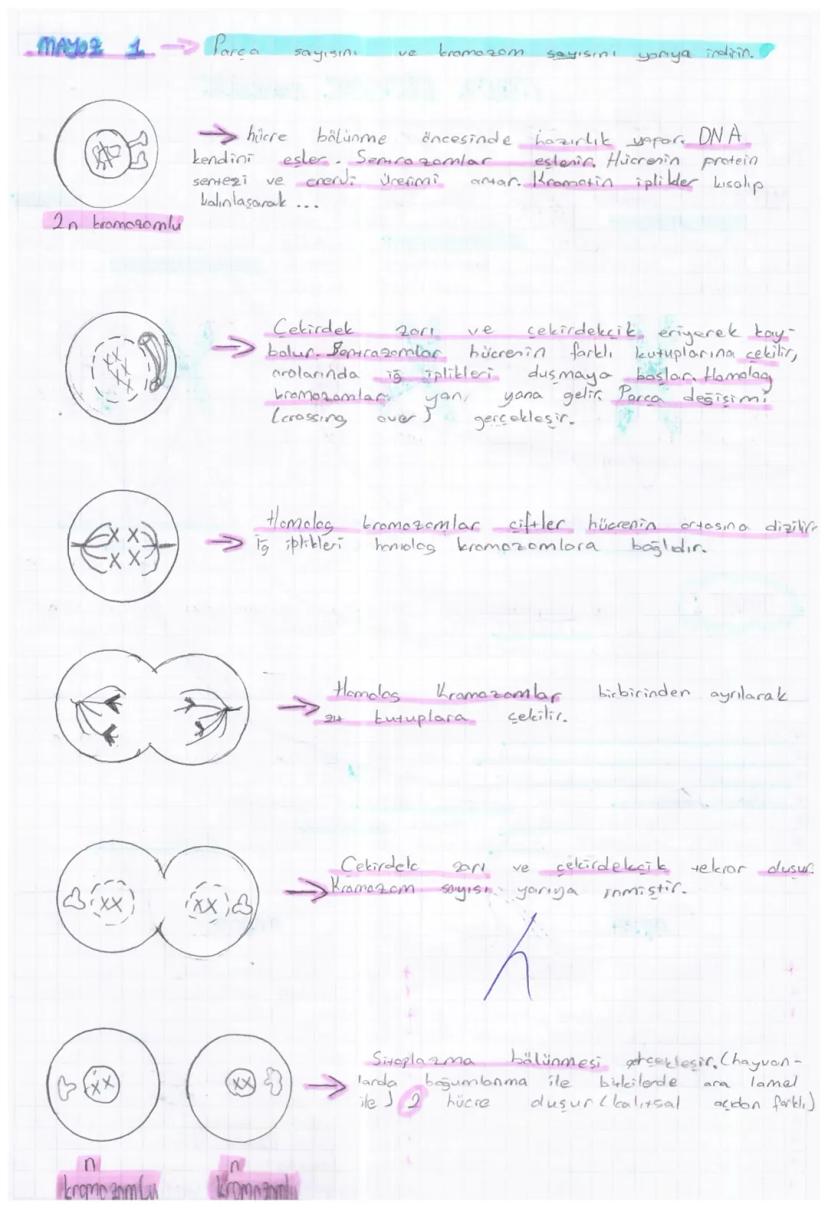 MAYOZ 1 → Parça sayısını ve kromozom sayısını yarıya indirir.
→ hücre bölünme öncesinde hazırlık yapar. DNA
kendini eşler. Sentrozomlar eşlenir. Hücrenin protein
sentezi ve enerji üretimi artar. Kromatin iplikler kısalıp
kalınlaşarak ...
2n kromozomlu
→ Çekirdek zarı ve çekirdekçik eriyerek kay-
bolur. Sentrozomlar hücrenin farklı kutuplarına çekilir,
aralarında iğ iplikleri oluşmaya başlar. Homolog
kromozomlar yan yana gelir. Parça değişimi
(crossing over) gerçekleşir.
Homolog kromozomlar çiftler hücrenin ortasına dizilir
→ İğ iplikleri homolog kromozomlara bağlıdır.
→ Homolog Kromozomlar birbirinden ayrılarak
zıt kutuplara çekilir.
Çekirdek zarı ve çekirdekçik tekrar oluşur.
→ Kromozom sayısı yarıya inmiştir.
Sitoplazma bölünmesi gerçekleşir. (hayvan-
→ larda boğumlanma ile bitkilerde ara lamel
ile) 2 hücre oluşur (kalıtsal açıdan farklı)
n kromozomlu
n kromozomlu